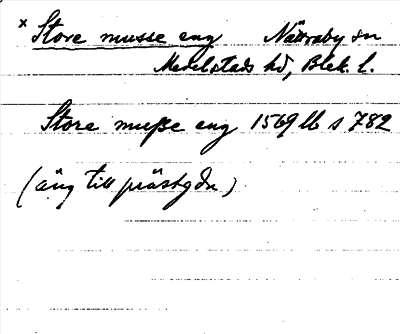 × Store musse eng Nättraby sn
Medelstads hd, Blek. l.
Store muſse eng 1569 lb s 782
(äng till prästgdn)